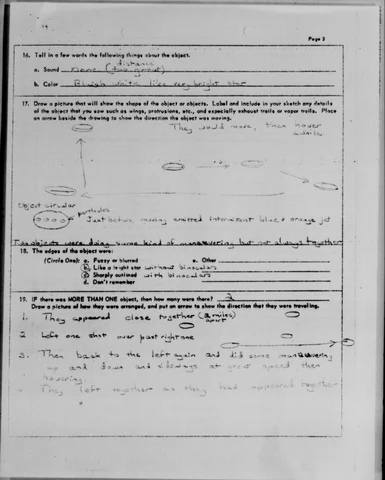 Page 3
16. Tell in a few words the following things about the object.
distance
a. Sound None (too great)
b. Color Bluish white like very bright star
17. Draw a picture that will show the shape of the object or objects. Label and include in your sketch any details
of the object that you saw such as wings, protrusions, etc., and especially exhaust trails or vapor trails. Place
an arrow beside the drawing to show the direction the object was moving.
They would move, then hover
awhile
Object circular
portholes
Just before moving emitted intermittent blue & orange jet
Two objects were doing some kind of maneuvering but not always together
18. The edges of the object were:
(Circle One): a. Fuzzy or blurred e. Other
b. Like a bright star without binoculars
c. Sharply outlined with binoculars
d. Don't remember
19. IF there was MORE THAN ONE object, then how many were there? 2
Draw a picture of how they were arranged, and put an arrow to show the direction that they were traveling.
1. They appeared close together (2 miles)
apart
2 Left one shot over past right one
3. Then back to the left again and did some maneuvering
up and down and sideways at great speed then
hovering
They left together as they had appeared together